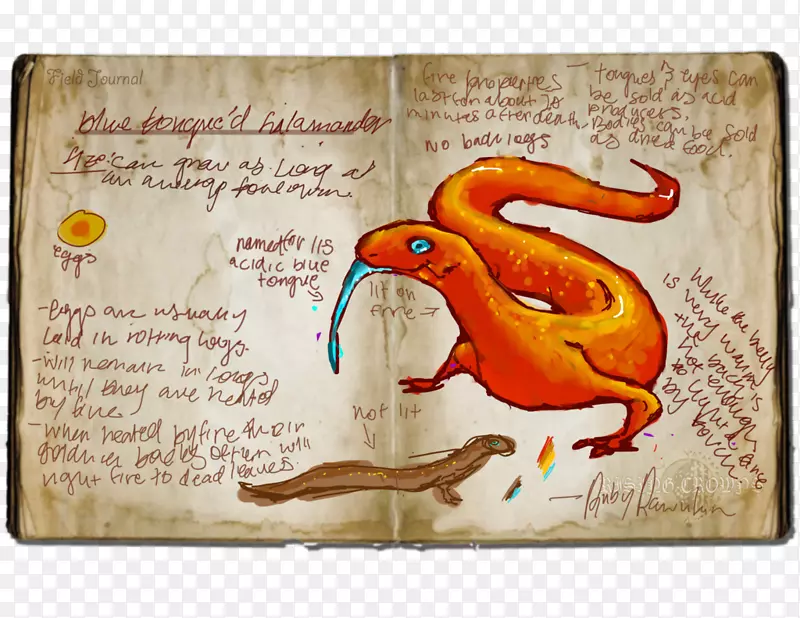 Field Journal
blue tongue'd Salamander
Size: can grow as long as
an average forearm.
eggs
named for its
acidic blue
tongue
- Eggs are usually
laid in rotting logs.
- will remain in logs
until they are heated
by fire.
- when heated by fire their
bodies often will
light fire to dead leaves.
fire properties
last for about 20
minutes after death
no back legs
- tongues & eyes can
be sold as acid
producers,
bodies can be sold
as dried food.
lit on
fire
not lit
while the belly
is very warm
the back is
hot enough
to light
by touch
RISING CROWN
- Ruby